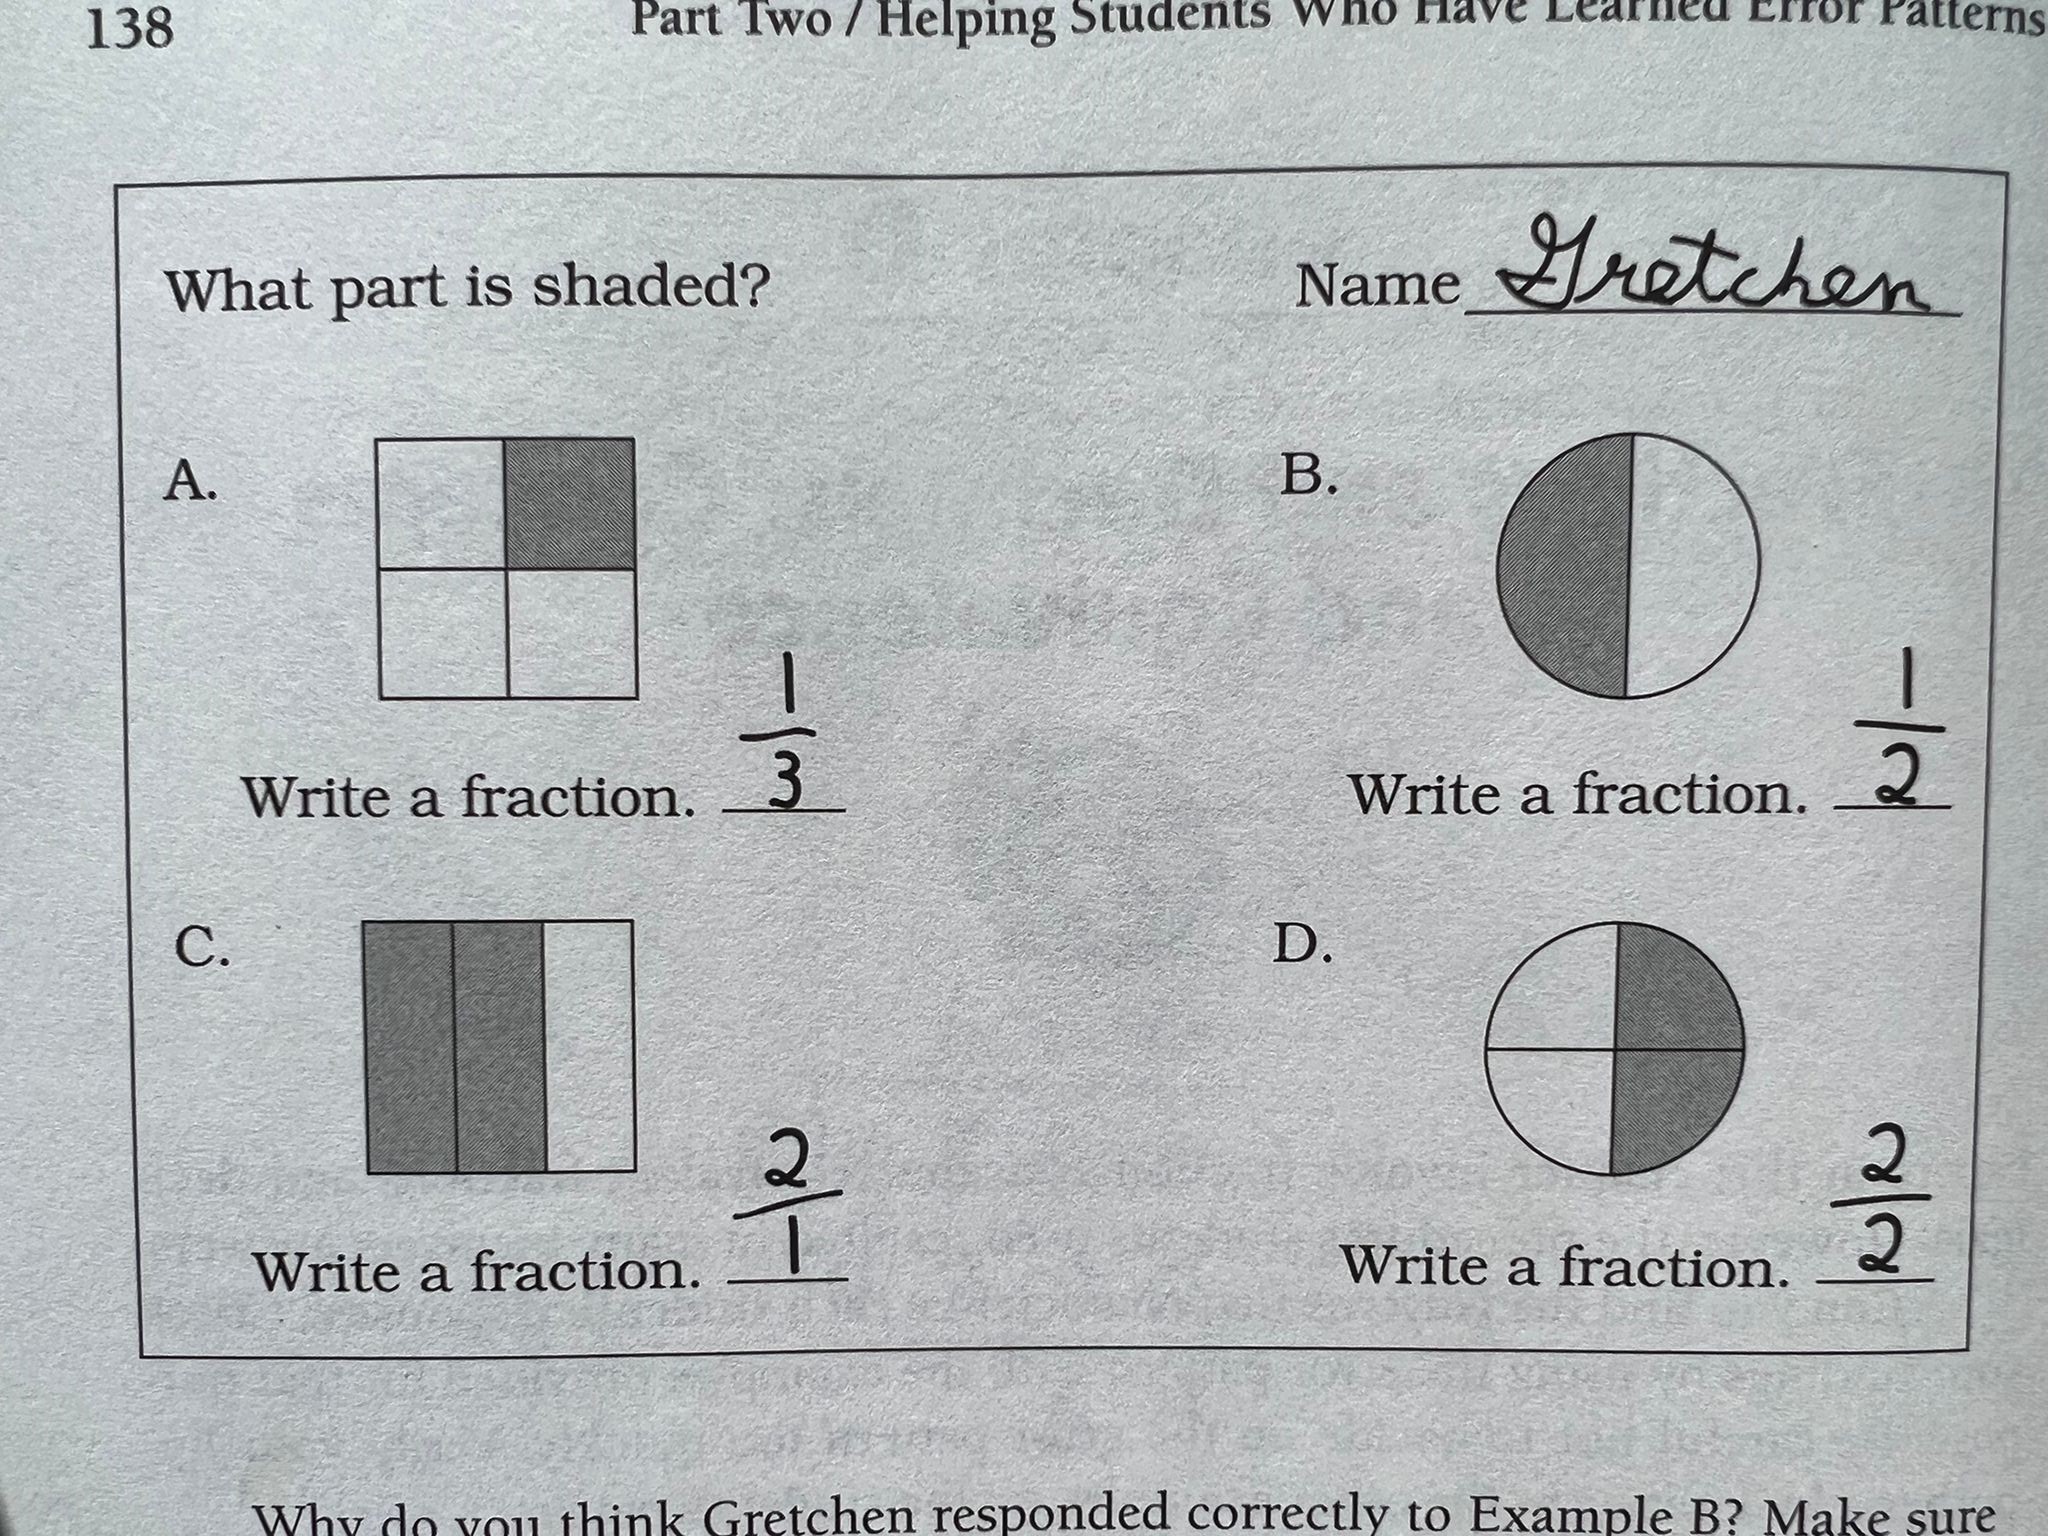 138 Part Two / Helping Students Who Have Learned Error Patterns
What part is shaded? Name Gretchen
A. B.
Write a fraction. 1/3 Write a fraction. 1/2
C. D.
Write a fraction. 2/1 Write a fraction. 2/2
Why do you think Gretchen responded correctly to Example B? Make sure